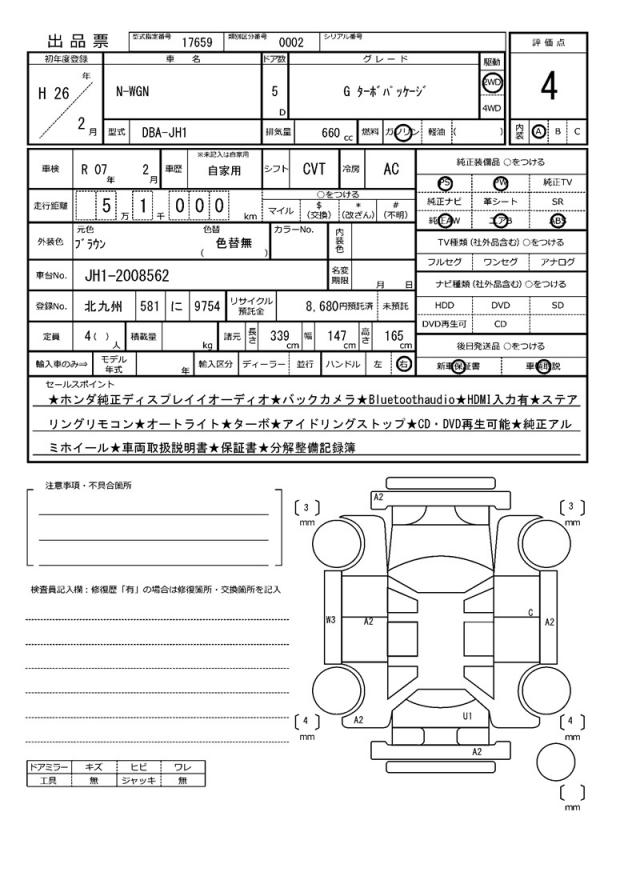 出品票
型式指定番号 17659 類別区分番号 0002 シリアル番号
評価点
初年度登録 車名 ドア数 グレード 駆動
H 26 年 2 月
N-WGN 5 D G ターボパッケージ 2WD 4WD
4
型式 DBA-JH1 排気量 660 cc 燃料 ガソリン 軽油 ( )
内装 A B C
車検 R 07 年 2 月 車歴 ※未記入は自家用 自家用 シフト CVT 冷房 AC
純正装備品 ○をつける
PS PW 純正TV
純正ナビ 革シート SR
純正AW エアB ABS
走行距離 5 万 1 千 0 0 0 km
○をつける
マイル $ (交換) * (改ざん) # (不明)
外装色 元色 ブラウン 色替 ( 色替無 ) カラーNo. 内装色
TV種類 (社外品含む) ○をつける
フルセグ ワンセグ アナログ
車台No. JH1-2008562 名変期限 月 日
ナビ種類 (社外品含む) ○をつける
HDD DVD SD
DVD再生可 CD
登録No. 北九州 581 に 9754 リサイクル預託金 8,680円預託済 未預託
定員 4( ) 人 積載量 kg 諸元 長さ 339 cm 幅 147 cm 高さ 165 cm
後日発送品 ○をつける
新車保証書 車輌取説
輸入車のみ⇒ モデル年式 年 輸入区分 ディーラー 並行 ハンドル 左 右
セールスポイント
★ホンダ純正ディスプレイオーディオ★バックカメラ★Bluetoothaudio★HDMI入力有★ステア
リングリモコン★オートライト★ターボ★アイドリングストップ★CD・DVD再生可能★純正アル
ミホイール★車両取扱説明書★保証書★分解整備記録簿
注意事項・不具合箇所
検査員記入欄：修復歴「有」の場合は修復箇所・交換箇所を記入
A2
3 mm
3 mm
W3
A2
C
A2
4 mm
A2
U1
4 mm
A2
mm
ドアミラー キズ ヒビ ワレ
工具 無 ジャッキ 無